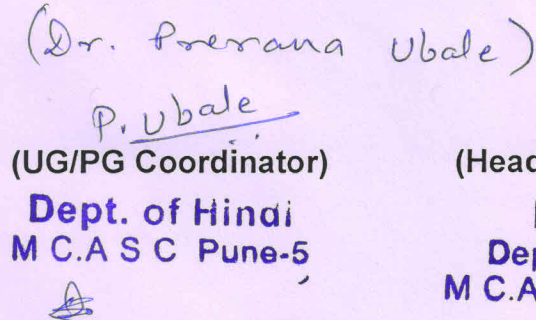 (Dr. Prerana Ubale)
P. Ubale
(UG/PG Coordinator) (Head
Dept. of Hindi
M C.A S C Pune-5 Dep
M C.A